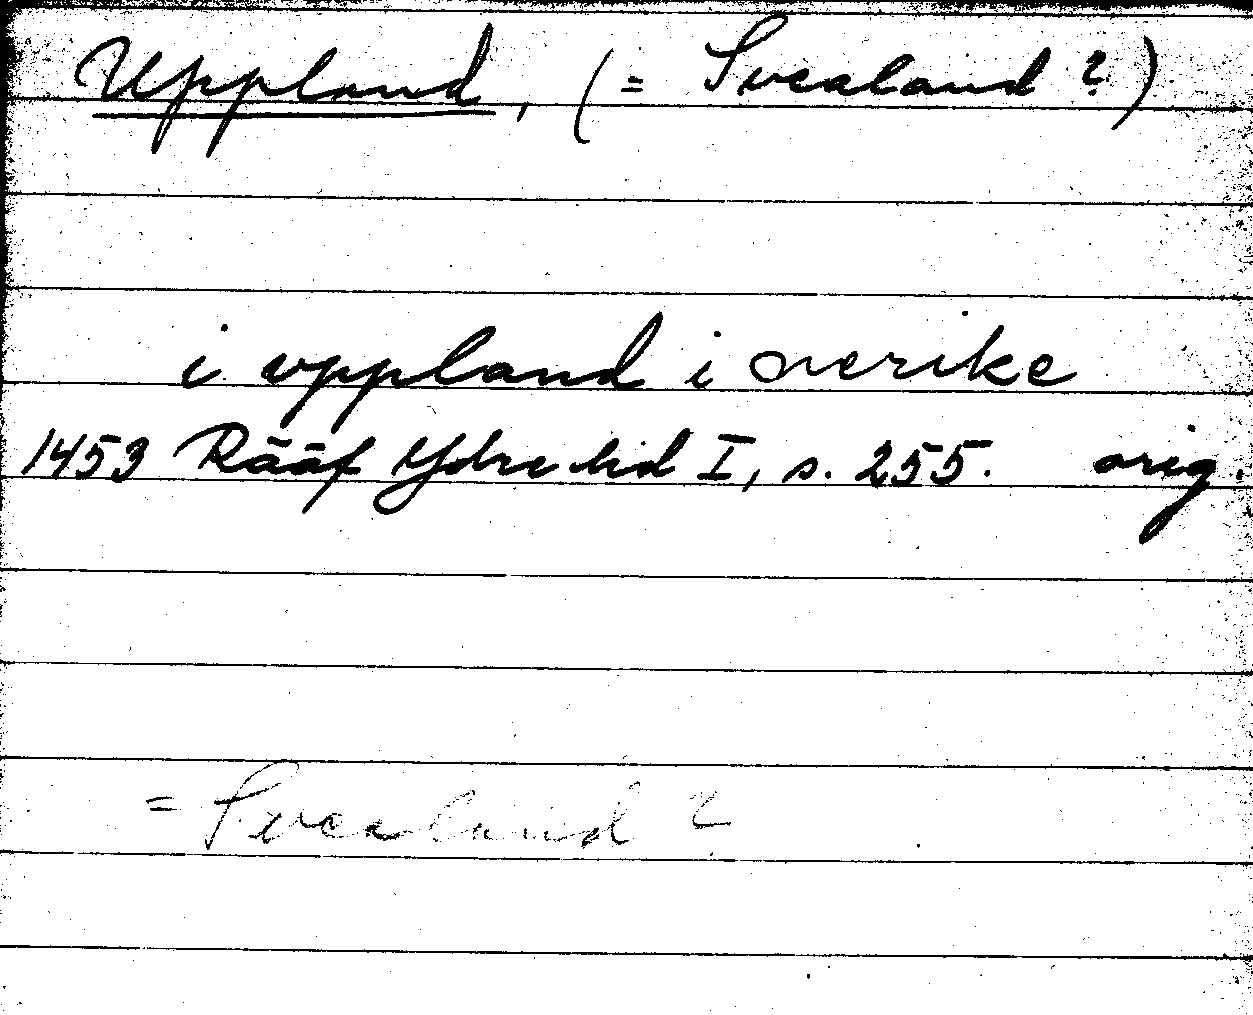 Uppland, (= Svealand ?)
i vppland i nerike
1453 Rääf Ydre hd I, s. 255. orig.
= Svealand ?